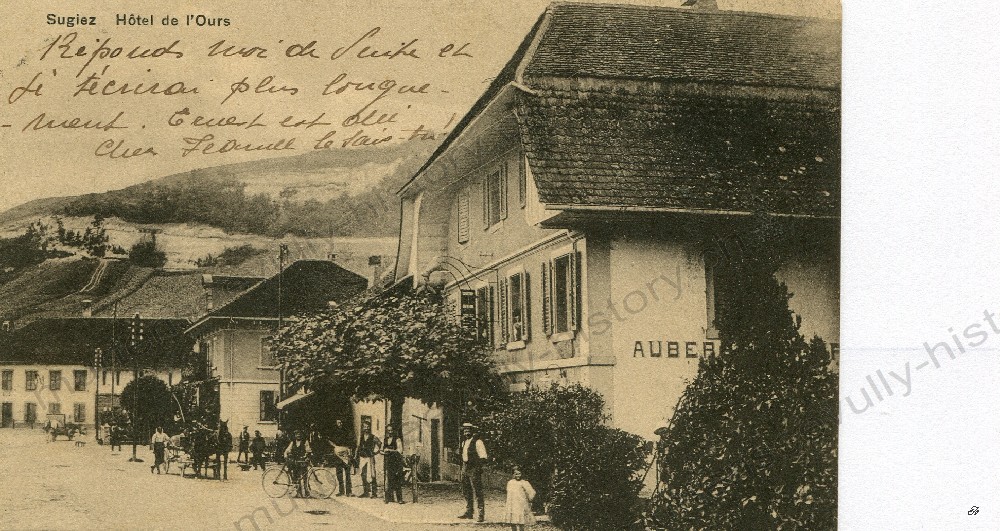 Sugiez Hôtel de l'Ours
Réponds moi de suite et
je t'écrirai plus longue-
-ment. Ernest est
Cher le sais tu!
AUBER
mully-history